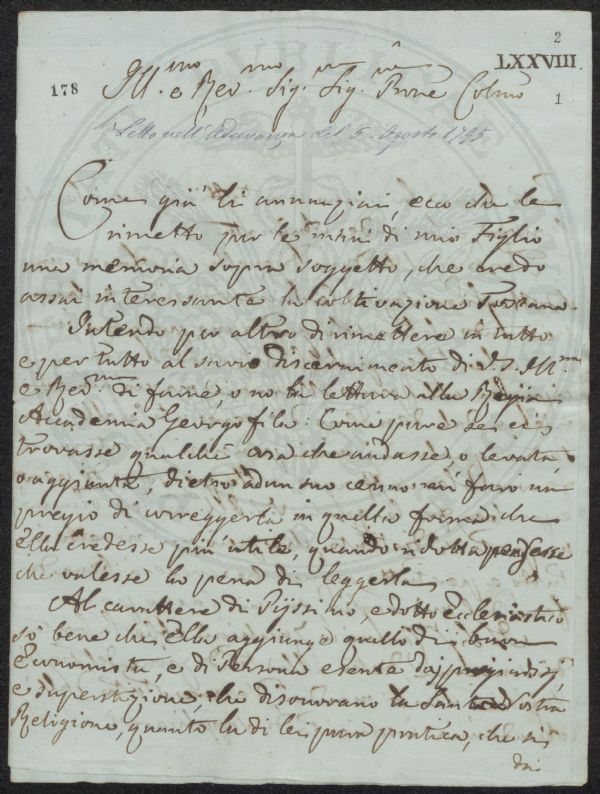 2
LXXVIII.
178
1
Ill.mo e Rev.mo Sig. Sig. Prone Colmo
Letta nell'Adunanza del 5. Agosto 1795
Come già li annunziai, ecco che le
rimetto per le mani di mio Figlio
una memoria sopra soggetto, che credo
assai interessante la coltivazione Toscana.
Intendo per altro di rimettere in tutto
e per tutto al savio discernimento di V.S. Ill.ma
e Rev.ma di farne, o no la lettura alla Regia
Accademia Georgofila: Come pure se ci
trovasse qualche cosa che andasse o levata,
o aggiunta, dietro ad un suo cenno mi farò un
pregio di correggerla in quella forma che
Ella credesse più utile, quando ridotta pensasse
che valesse la pena di leggerla
Al carattere di Pijssimo, e dotto Ecclesiastico
sò bene che Ella aggiunge quello di buon
Economista, e di Persona esente da pregiudizj,
e superstizione, che disonorano la Santa Nostra
Religione, quanto la di lei pura pratica, che si